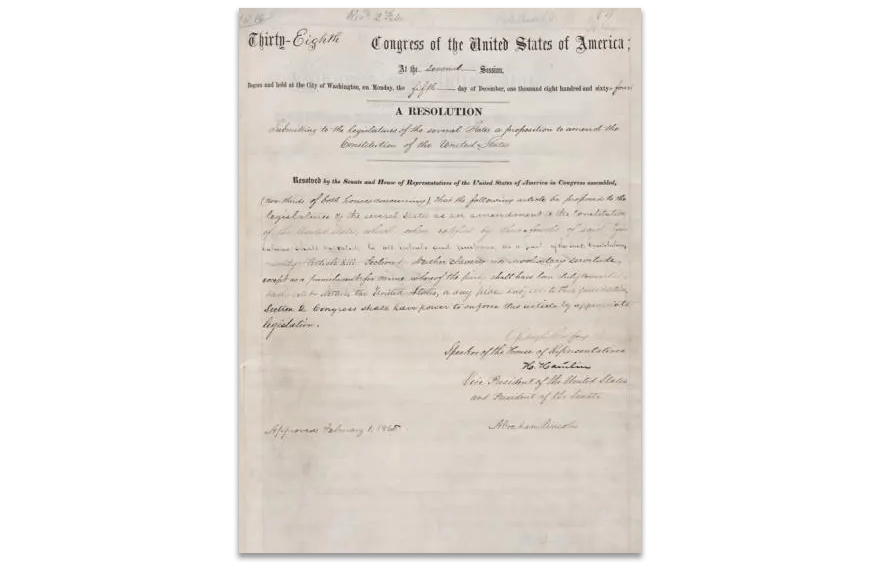 Thirty-Eighth Congress of the United States of America;
At the second Session,
Begun and held at the City of Washington, on Monday, the fifth day of December, one thousand eight hundred and sixty-four
A RESOLUTION
Submitting to the legislatures of the several States a proposition to amend the
Constitution of the United States
Resolved by the Senate and House of Representatives of the United States of America in Congress assembled,
(two-thirds of both houses concurring), That the following article be proposed to the
legislatures of the several States as an amendment to the Constitution
of the United States, which, when ratified by three-fourths of said
shall be valid, to all intents and purposes, as a part of the said Constitution,
Article XIII. Section 1. Neither slavery nor involuntary servitude,
except as a punishment for crime whereof the party shall have been duly
the United States, or any place subject to their jurisdiction.
Section 2. Congress shall have power to enforce this article by appropriate
legislation.
Speaker of the House of Representatives
H. Hamlin
Vice President of the United States
and President of the Senate
Approved February 1, 1865
Abraham Lincoln